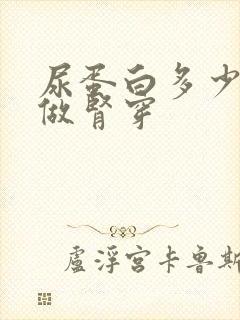 尿蛋白多少
做肾穿
盧浮宮卡魯斯